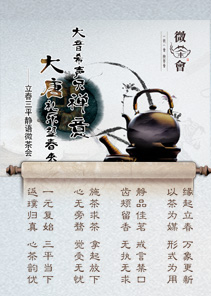 微茶會
大音希声品禅意
大唐礼乐迎春
立春三平静语微茶会
缘起立春 万象更新
以茶为媒 形式为用
静品佳茗 戒言禁口
齿颊留香 无执无求
施茶求茶 拿起放下
心无旁骛 觉受无忧
一元复始 三平当下
返璞归真 心茶韵优